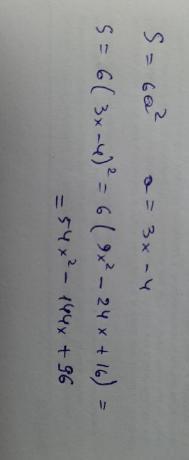 S = 6a² a = 3x - 4
S = 6(3x - 4)² = 6(9x² - 24x + 16) =
= 54x² - 144x + 96